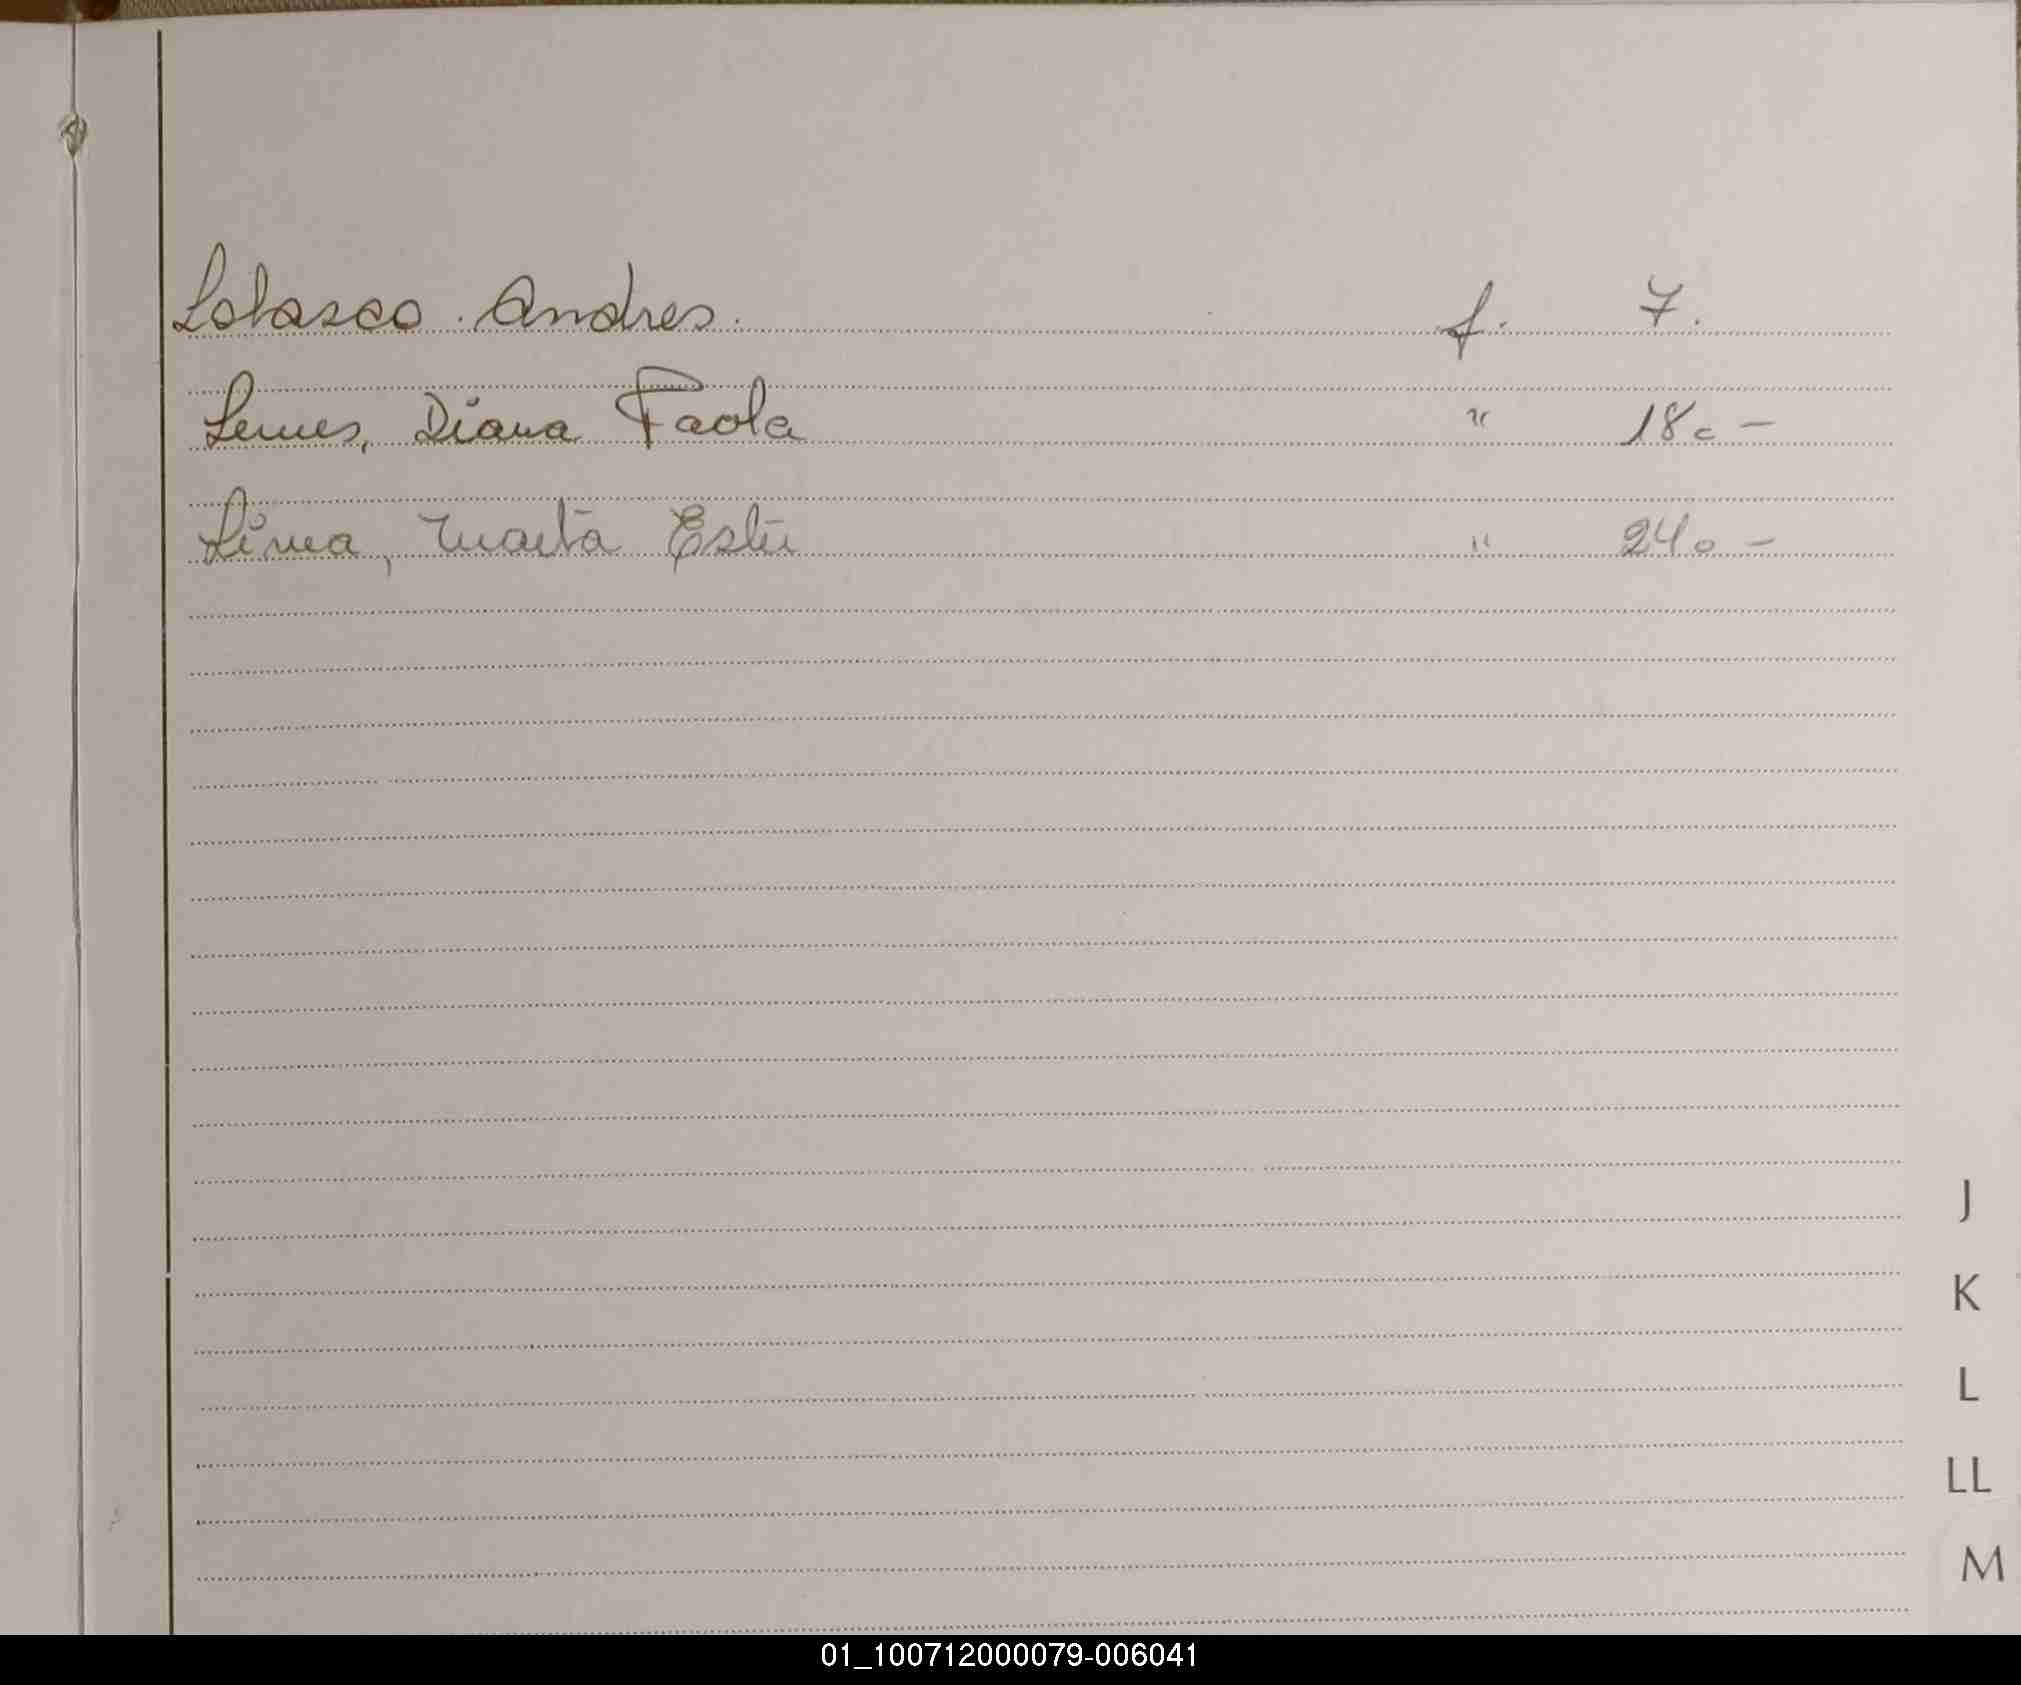 Lobasco. Andres. f. 7.
Lemes, Diana Paola " 180 -
Lima, Marta Ester " 240 -
J
K
L
LL
M
01_100712000079-006041